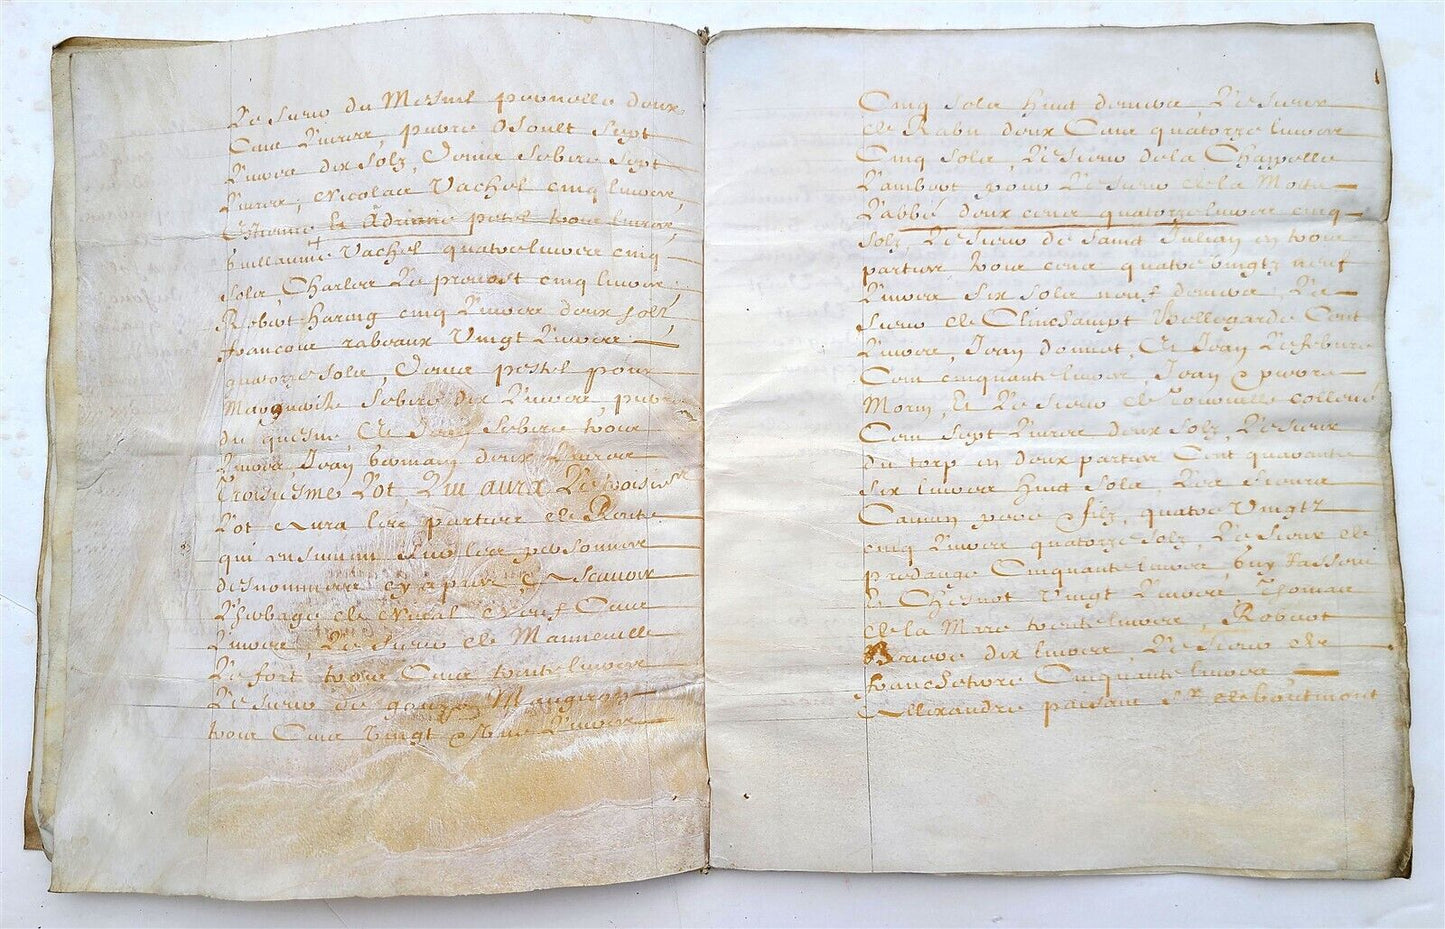 Le sieur du Mesnil pernelle deux
Cens Livres, pierre Osoult sept
Livres dix solz, Denis Febvre sept
Livres, Nicolas Vachel cinq livres,
Estienne et Adrianne petel trois livres,
Guillaume Vachel quatre livres cinq
solz, Charles Le provost cinq livres,
Robert haring cinq Livres deux solz,
francois rabeaux Vingt Livres
quatorze solz, Denis pestel pour
Margueritte Febvre dix Livres, pierre
du quesne et Febvre trois
Livres Jean deux Livres
Troisiesme Lot Qui aura Le troisiesme
Lot Aura les parties de Rente
qui ensuivent sur les personnes
desnommees cy apres, Scavoir
L'herbage de Neuf Cens
Livres, Le sieur de Manneville
Le fort trois Cens trente livres
Le sieur de Maugeron
trois Cens vingt Livres
Cinq solz huit deniers Le sieur
de Rabu deux Cens quatorze livres
Cinq solz, Le sieur de la Chappelle
Lambert pour Le sieur de la Motte
Labbé deux cens quatorze livres cinq
solz, Le sieur de Sainct Julian en trois
parties trois cens quatre vingtz neuf
Livres six solz neuf deniers, Le
sieur de Clinchampt Bellegarde Cent
Livres, Jean donnet, et Jean Lefebvre
Cent cinquante livres, Jean pierre
Morin, Et Le sieur de Touville
Cent sept Livres deux solz, Le sieur
du torp en deux parties Cent quarante
six livres huit solz, Les sieurs
Camin pere filz, quatre Vingtz
cinq Livres quatorze solz, Le sieur de
predauge Cinquante livres, Guy
Le Chesnot Vingt Livres, Thomas
de la Mare trente livres, Robert
Brierre dix livres, Le sieur de
Cinquante livres
Allexandre paisant sr de boutmont